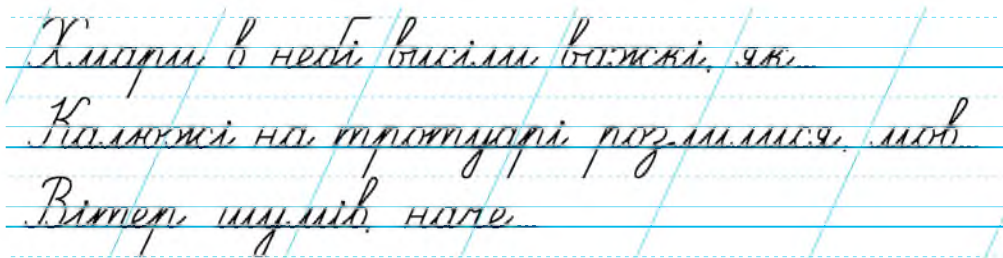 Хмари в небі висіли важкі, як...
Калюжі на тротуарі розлилися, мов...
Вітер шумів, наче...